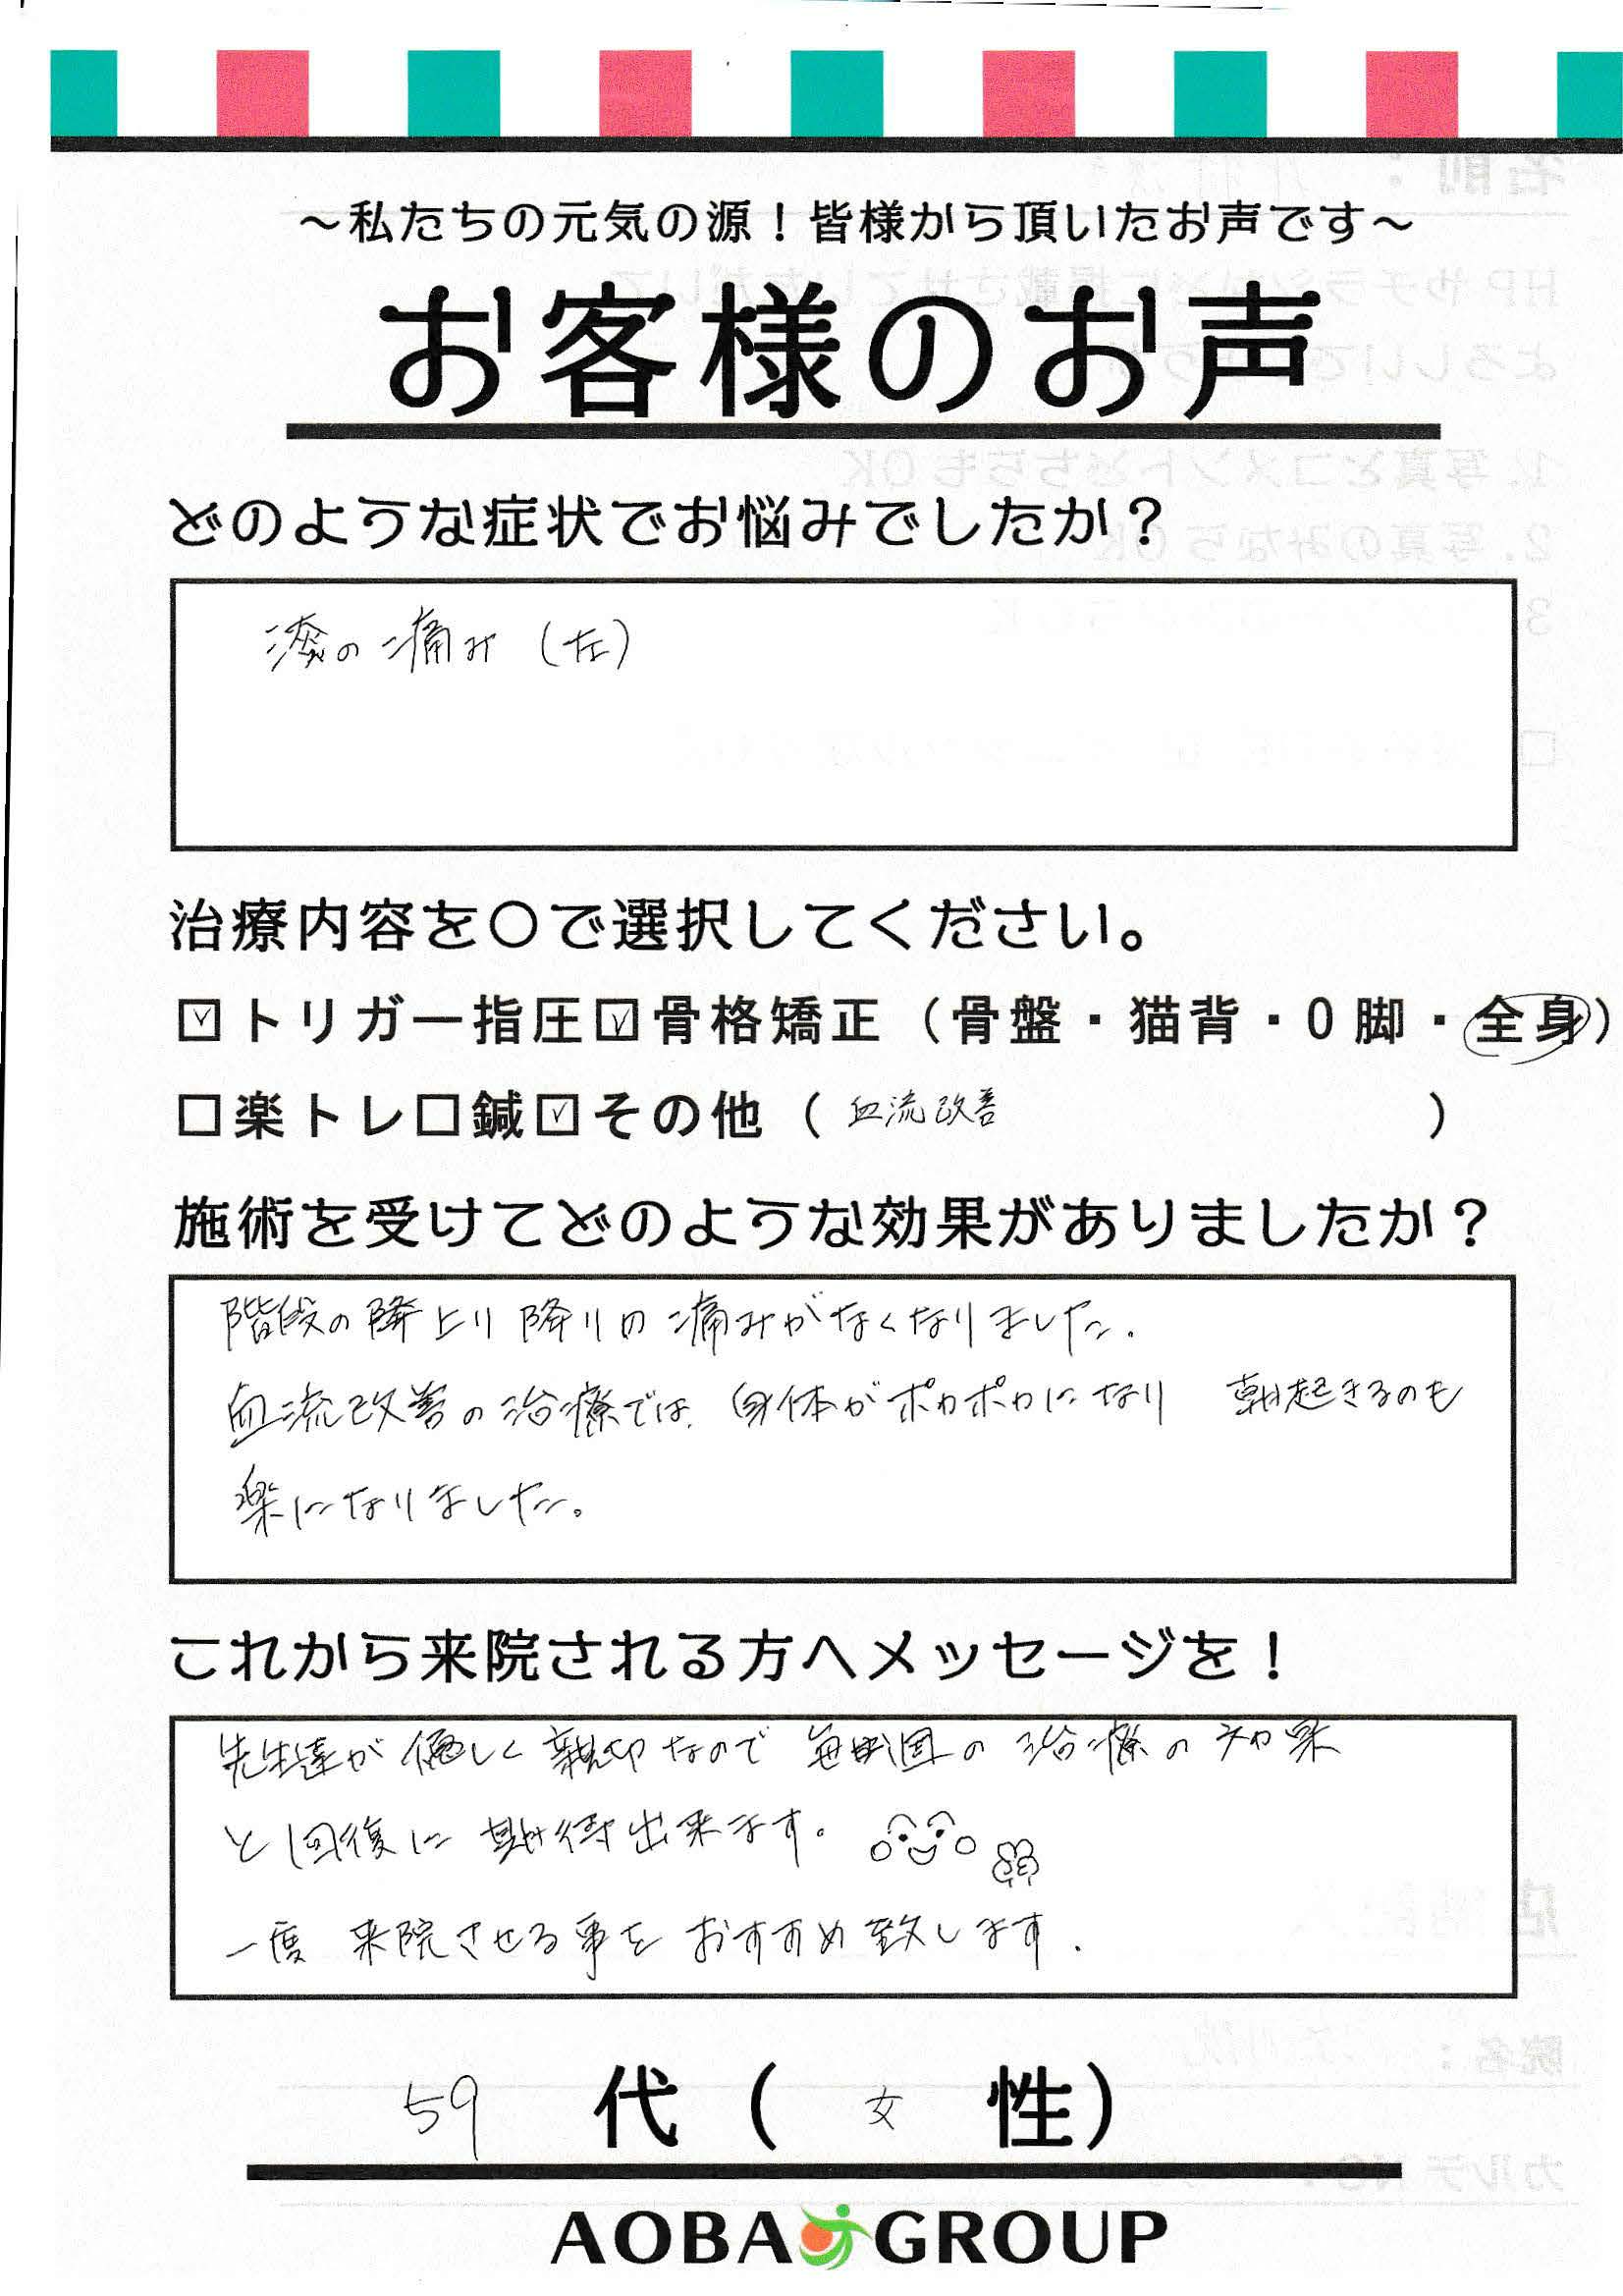 ～私たちの元気の源！皆様から頂いたお声です～
お客様のお声
どのような症状でお悩みでしたか？
漆の痛み（左）
治療内容を〇で選択してください。
☑トリガー指圧☑骨格矯正（骨盤・猫背・O脚・全身）
□楽トレ□鍼☑その他（血流改善）
施術を受けてどのような効果がありましたか？
階段の降上り降りの痛みがなくなりました.
血流改善の治療では、身体がポカポカになり 朝起きるのも
楽になりました。
これから来院される方へメッセージを！
先生達が優しく親切なので 毎回の治療の効果
と回復に期待出来ます。
一度 来院させる事を おすすめ致します.
59代（女性）
AOBA GROUP